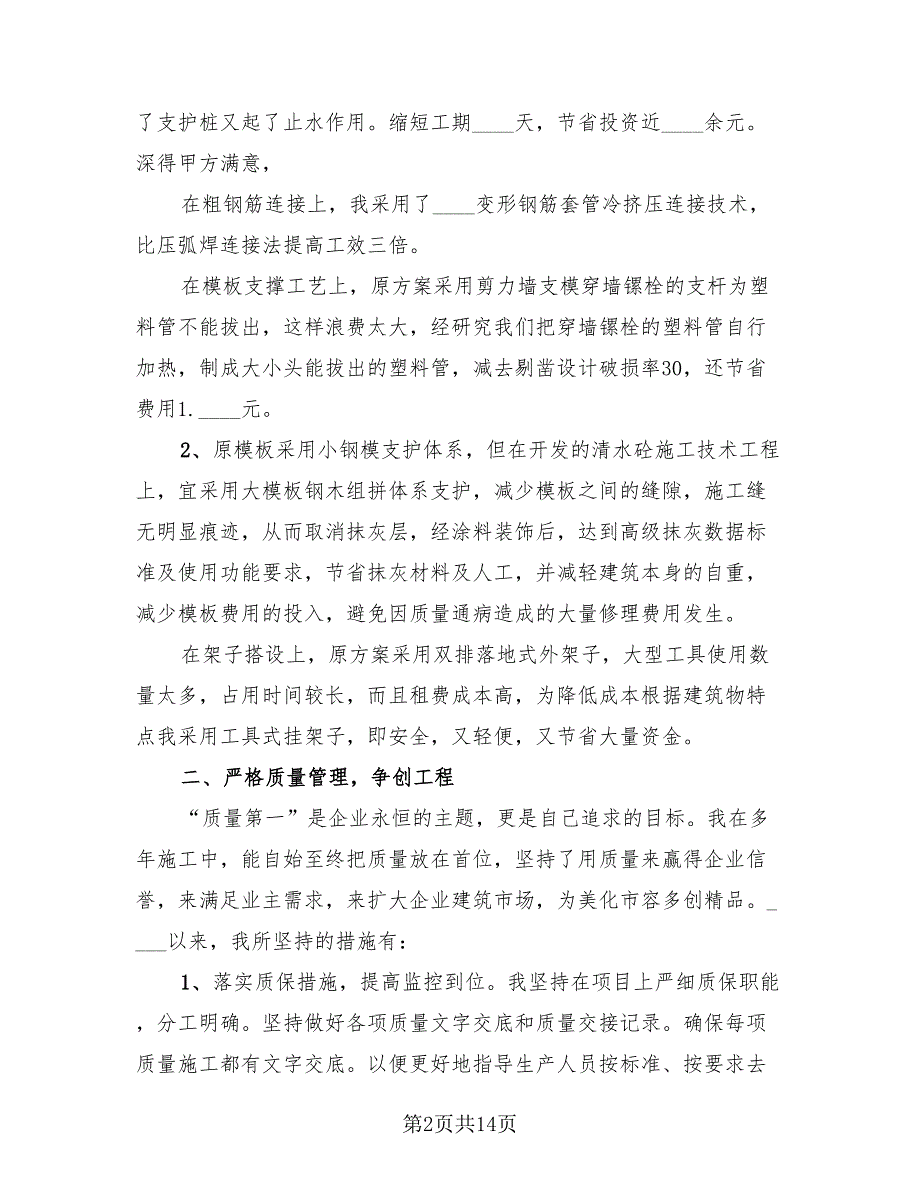 了支护桩又起了止水作用。缩短工期____天，节省投资近____余元。
深得甲方满意，
在粗钢筋连接上，我采用了____变形钢筋套管冷挤压连接技术，
比压弧焊连接法提高工效三倍。
在模板支撑工艺上，原方案采用剪力墙支模穿墙镙栓的支杆为塑
料管不能拔出，这样浪费太大，经研究我们把穿墙镙栓的塑料管自行
加热，制成大小头能拔出的塑料管，减去剔凿设计破损率30，还节省
费用1.____元。
2、原模板采用小钢模支护体系，但在开发的清水砼施工技术工程
上，宜采用大模板钢木组拼体系支护，减少模板之间的缝隙，施工缝
无明显痕迹，从而取消抹灰层，经涂料装饰后，达到高级抹灰数据标
准及使用功能要求，节省抹灰材料及人工，并减轻建筑本身的自重，
减少模板费用的投入，避免因质量通病造成的大量修理费用发生。
在架子搭设上，原方案采用双排落地式外架子，大型工具使用数
量太多，占用时间较长，而且租费成本高，为降低成本根据建筑物特
点我采用工具式挂架子，即安全，又轻便，又节省大量资金。
二、严格质量管理，争创工程
“质量第一”是企业永恒的主题，更是自己追求的目标。我在多
年施工中，能自始至终把质量放在首位，坚持了用质量来赢得企业信
誉，来满足业主需求，来扩大企业建筑市场，为美化市容多创精品。_
___以来，我所坚持的措施有：
1、落实质保措施，提高监控到位。我坚持在项目上严细质保职能
，分工明确。坚持做好各项质量文字交底和质量交接记录。确保每项
质量施工都有文字交底。以便更好地指导生产人员按标准、按要求去
第2页共14页